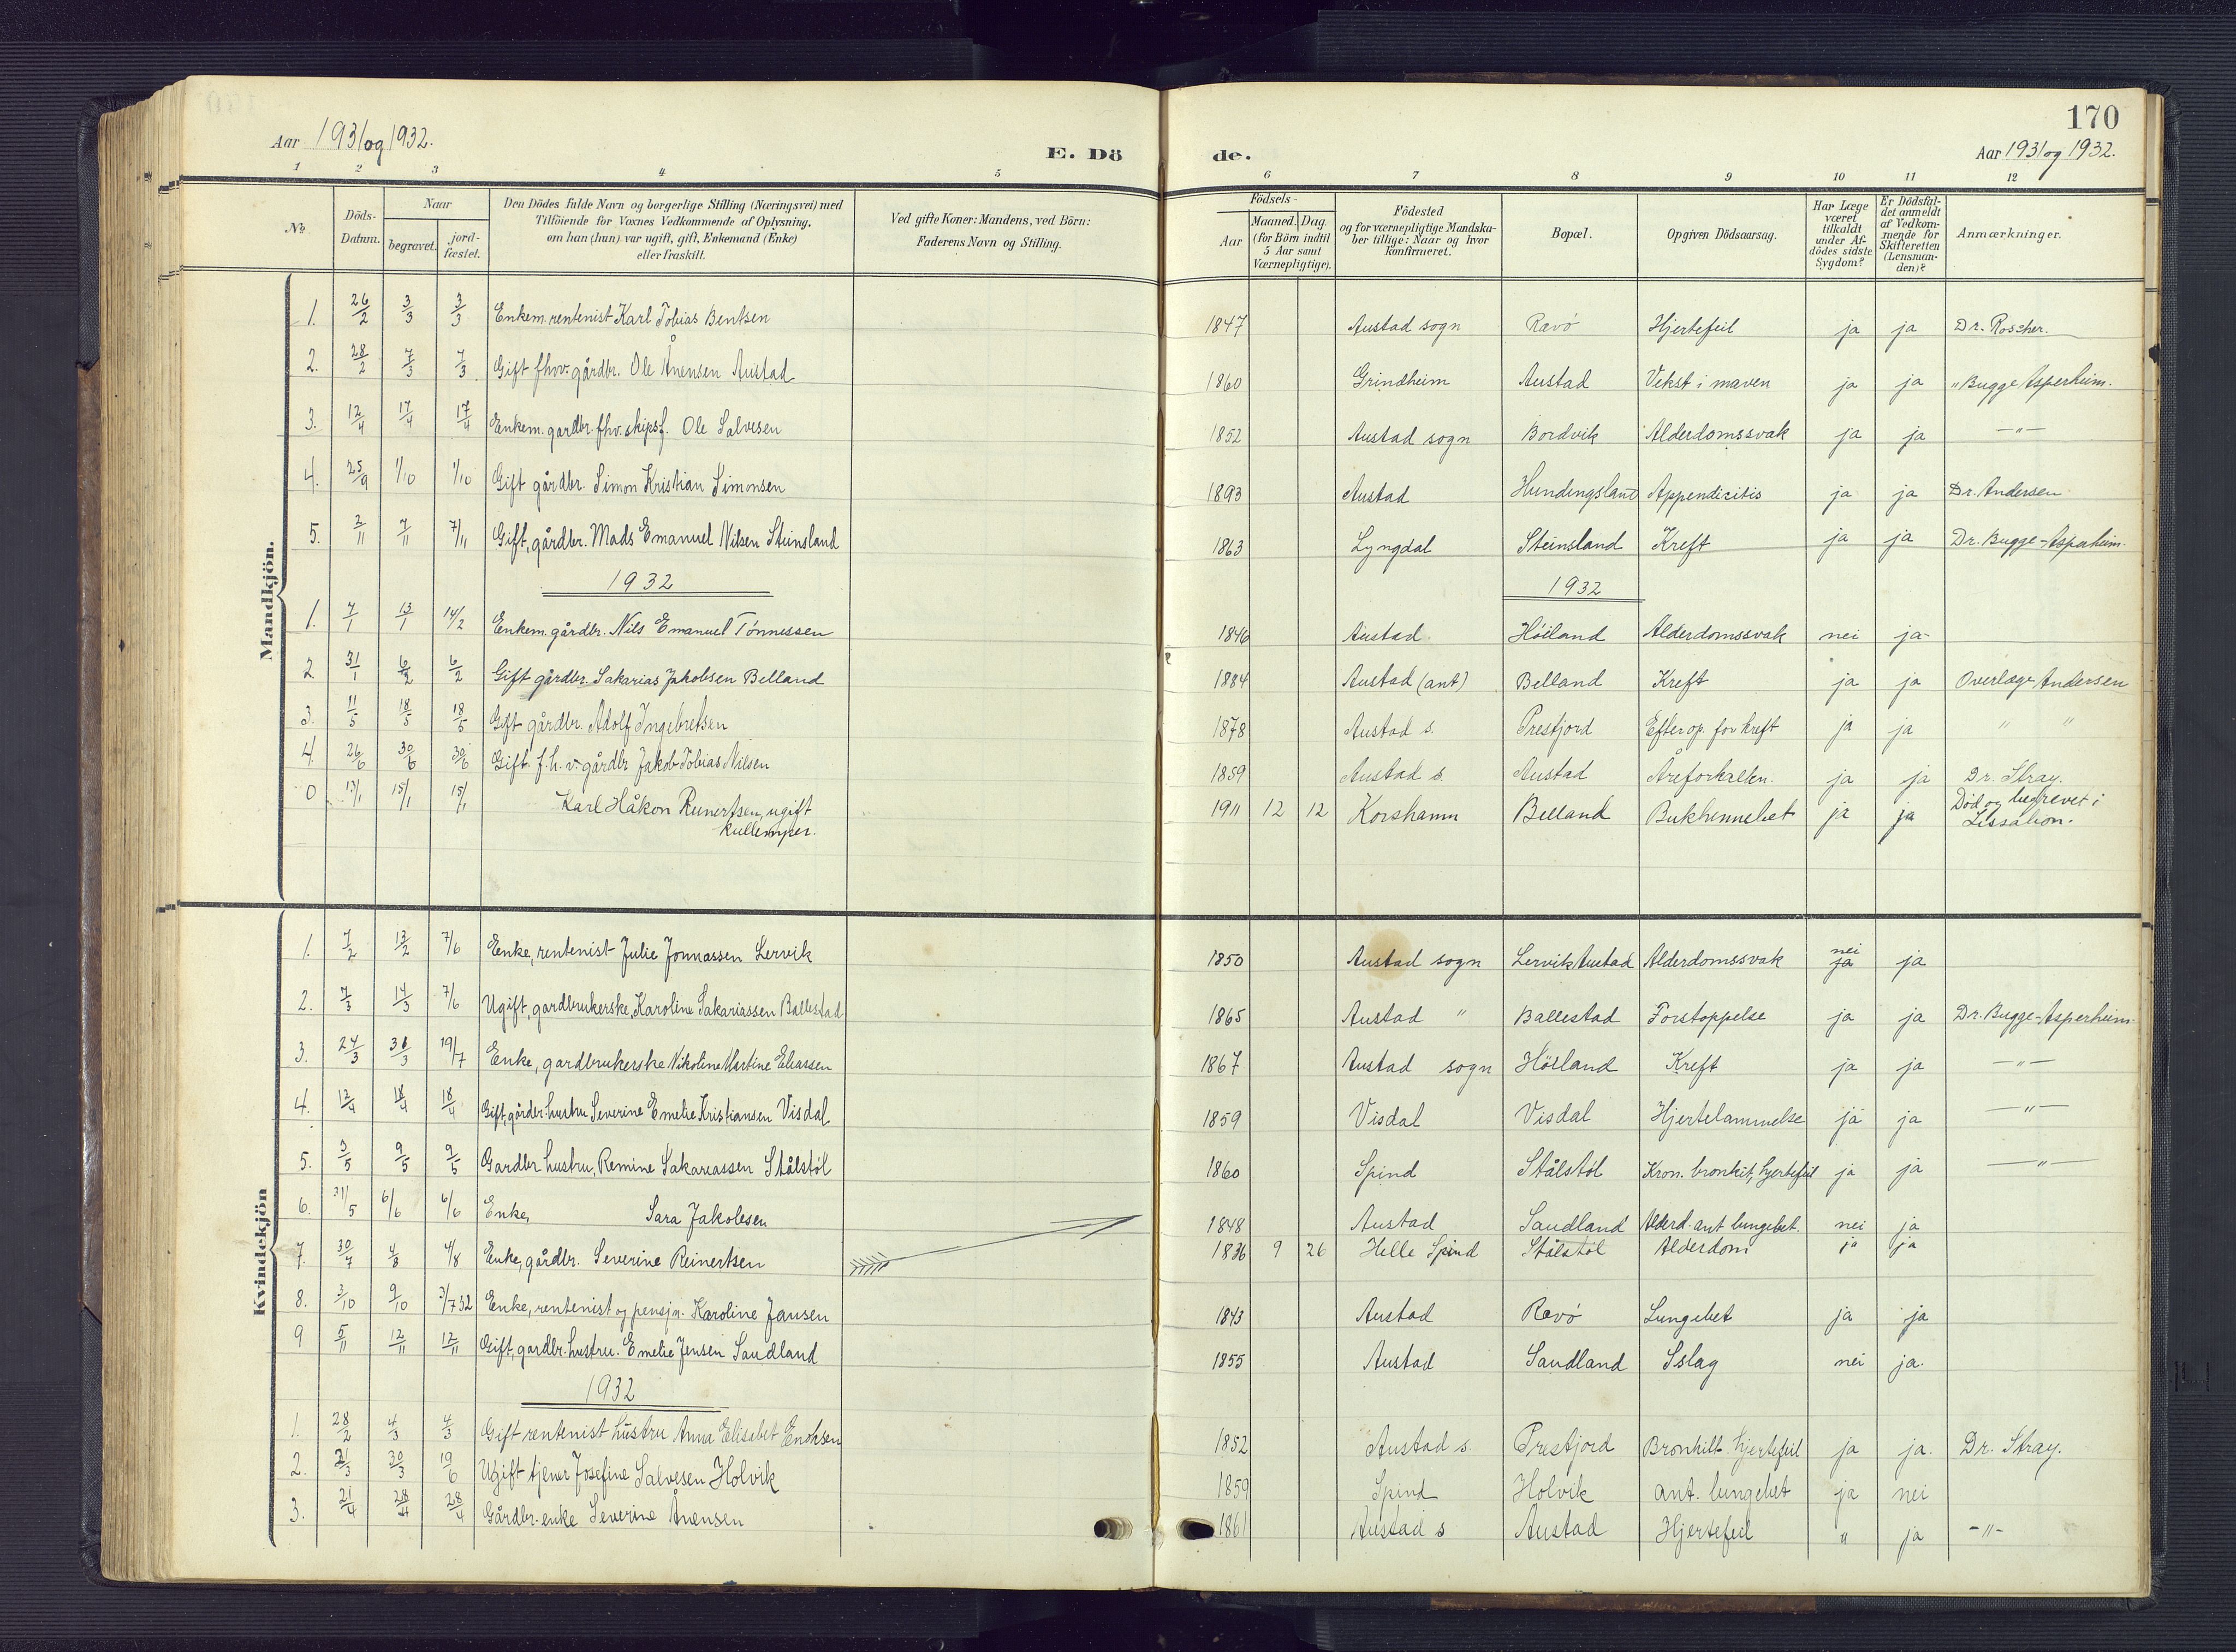 170
Aar 1931 og 1932.
E. Dö de.
Aar 1931 og 1932.
1 2 3 4 5 6 7 8 9 10 11 12
No
Döds-Datum.
Naar
begravet.
jord-fæstet.
Den Dödes fulde Navn og borgerlige Stilling (Næringsvei) med
Tilföiende for Voxnes Vedkommende af Oplysning,
om han (hun) var ugift, gift, Enkemand (Enke)
eller fraskilt.
Ved gifte Koner: Mandens, ved Börn:
Faderens Navn og Stilling.
Födsels-
Aar
Maaned.
Dag.
(for Börn indtil
5 Aar samt
Værnepligtige).
Födested
og for værnepligtige Mandska-
ber tillige: Naar og hvor
konfirmeret.
Bopæl.
Opgiven Dödsaarsag.
Har Læge
været
tilkaldt
under Af-
dödes sidste
Sygdom?
Er Dödsfal-
det anmeldt
af Vedkom-
mende for
Skifteretten
(Lensman-
den)?
Anmærkninger.
Mandkjön.
1. 26/2 3/3 3/3 Enkem. rentenist Karl Tobias Bentsen 1847 Austad sogn Ravö Hjertefeil ja ja Dr. Roscher.
2. 28/2 7/3 7/3 Gift fhv. gårdbr. Ole Ånensen Austad 1860 Grindheim Austad Vekst i maven ja ja " Bugge Asperheim.
3. 12/4 17/4 17/4 Enkem. gardbr. fhv. skipsf. Ole Salvesen 1852 Austad sogn Bordvik Alderdomssvak ja ja —"—
4. 25/9 1/10 1/10 Gift gårdbr. Simon Kristian Simonsen 1893 Austad Hundingsland Appendicitis ja ja Dr. Andersen
5. 2/11 7/11 7/11 Gift, gårdbr. Mads Emanuel Nilsen Steinsland 1863 Lyngdal Steinsland Kreft ja ja Dr. Bugge-Asperheim.
1932 1932
1. 7/1 13/1 14/2 Enkem. gårdbr. Nils Emanuel Tönnessen 1846 Austad Höiland Alderdomssvak nei ja
2 31/1 6/2 6/2 Gift gårdbr. Sakarias Jakobsen Belland 1884 Austad (ant) Belland Kreft ja ja Overlæge Andersen
3. 11/5 18/5 18/5 Gift gårdbr. Adolf Ingebretsen 1878 Austad s. Prestjord Efter op. for kreft ja ja " "
4. 26/6 30/6 30/6 Gift. f.h.v. gårdbr Jakob Tobias Nilsen 1859 Austad s. Austad Åreforkalkn. ja ja Dr. Stray.
0 13/1 15/1 15/1 Karl Håkon Reinertsen, ugift 1911 12 12 Korshamn Belland Bukhinnebet ja ja Död og begravet i
kullemper. Lissabon.
Kvindekjön
1. 7/2 13/2 7/6 Enke, rentenist Julie Jonnassen Lervik 1850 Austad sogn Lervik Austad Alderdomssvak nei ja ja
2. 7/3 14/3 7/6 Ugift, gardbrukerske, Karoline Sakariassen Ballestad 1865 Austad " Ballestad Forstoppelse ja ja Dr. Bugge-Asperheim
3. 24/3 31/3 19/7 Enke, gardbrukerske Nikoline Martine Eliassen 1867 Austad sogn Höiland Kreft ja ja —"—
4. 12/4 18/4 18/4 Gift, gårdbr. hustru Severine Emelie Kristiansen Visdal 1859 Visdal Visdal Hjertelammelse ja ja —"—
5. 3/5 9/5 9/5 Gardbr hustru, Remine Sakariassen Stålstöl 1860 Spind Stålstöl Kron. bronkit, hjertefeil ja ja —"—
6. 31/5 6/6 6/6 Enke, Sara Jakobsen 1848 Austad Saudland Alderd. ant lungebet. nei ja
7. 30/7 4/8 4/8 Enke, gårdbr. Severine Reinertsen 1836 9 26 Helle Spind Stålstöl Alderdom ja ja
8. 3/10 9/10 3/7 32 Enke, rentenist og pensjn. Karoline Jansen 1843 Austad Ravö Lungebet ja ja
9 5/11 12/11 12/11 Gift, gardbr. hustru. Emelie Jensen Saudland 1855 Austad Saudland Sslag nei ja.
1932
1. 28/2 4/3 4/3 Gift rentenist hustru Anna Elisabet Enoksen 1852 Austad s. Prestjord Bronkitt. hjertefeil ja ja. Dr. Stray.
2. 21/3 30/3 19/6 Ugift tjener Josefine Salvesen Holvik 1859 Spind Holvik ant. lungebet ja nei
3. 21/4 28/4 28/4 Gårdbr. enke Severine Ånensen 1861 Austad s Austad Hjertefeil " ja —"—